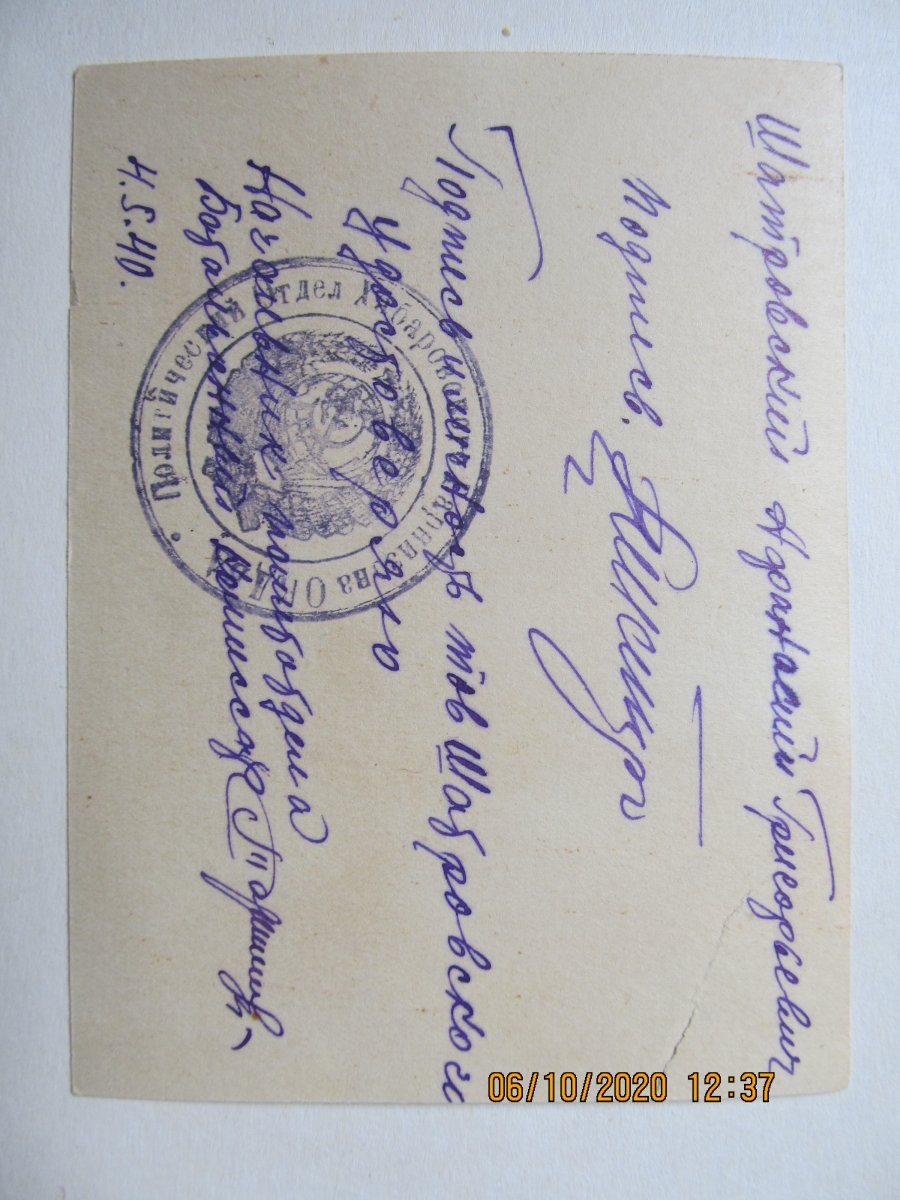 Шатровский Афанасий Григорьевич
подпись.
Подпись и личность тов Шабровского и
Удостоверяю
Начальник политотдела
Батальонный комиссар
4.5.40.
Политический Отдел Хабаровского Гарниз
06/10/2020 12:37